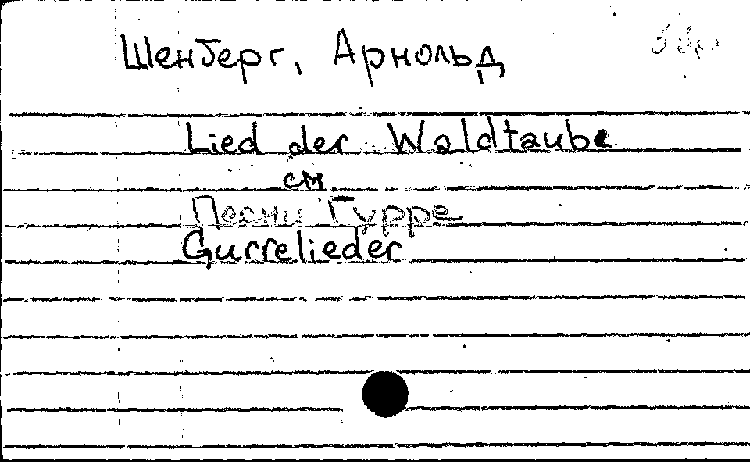 Шенберг, Арнольд
Lied der Waldtaube
см
Песни Гурре
Gurrelieder